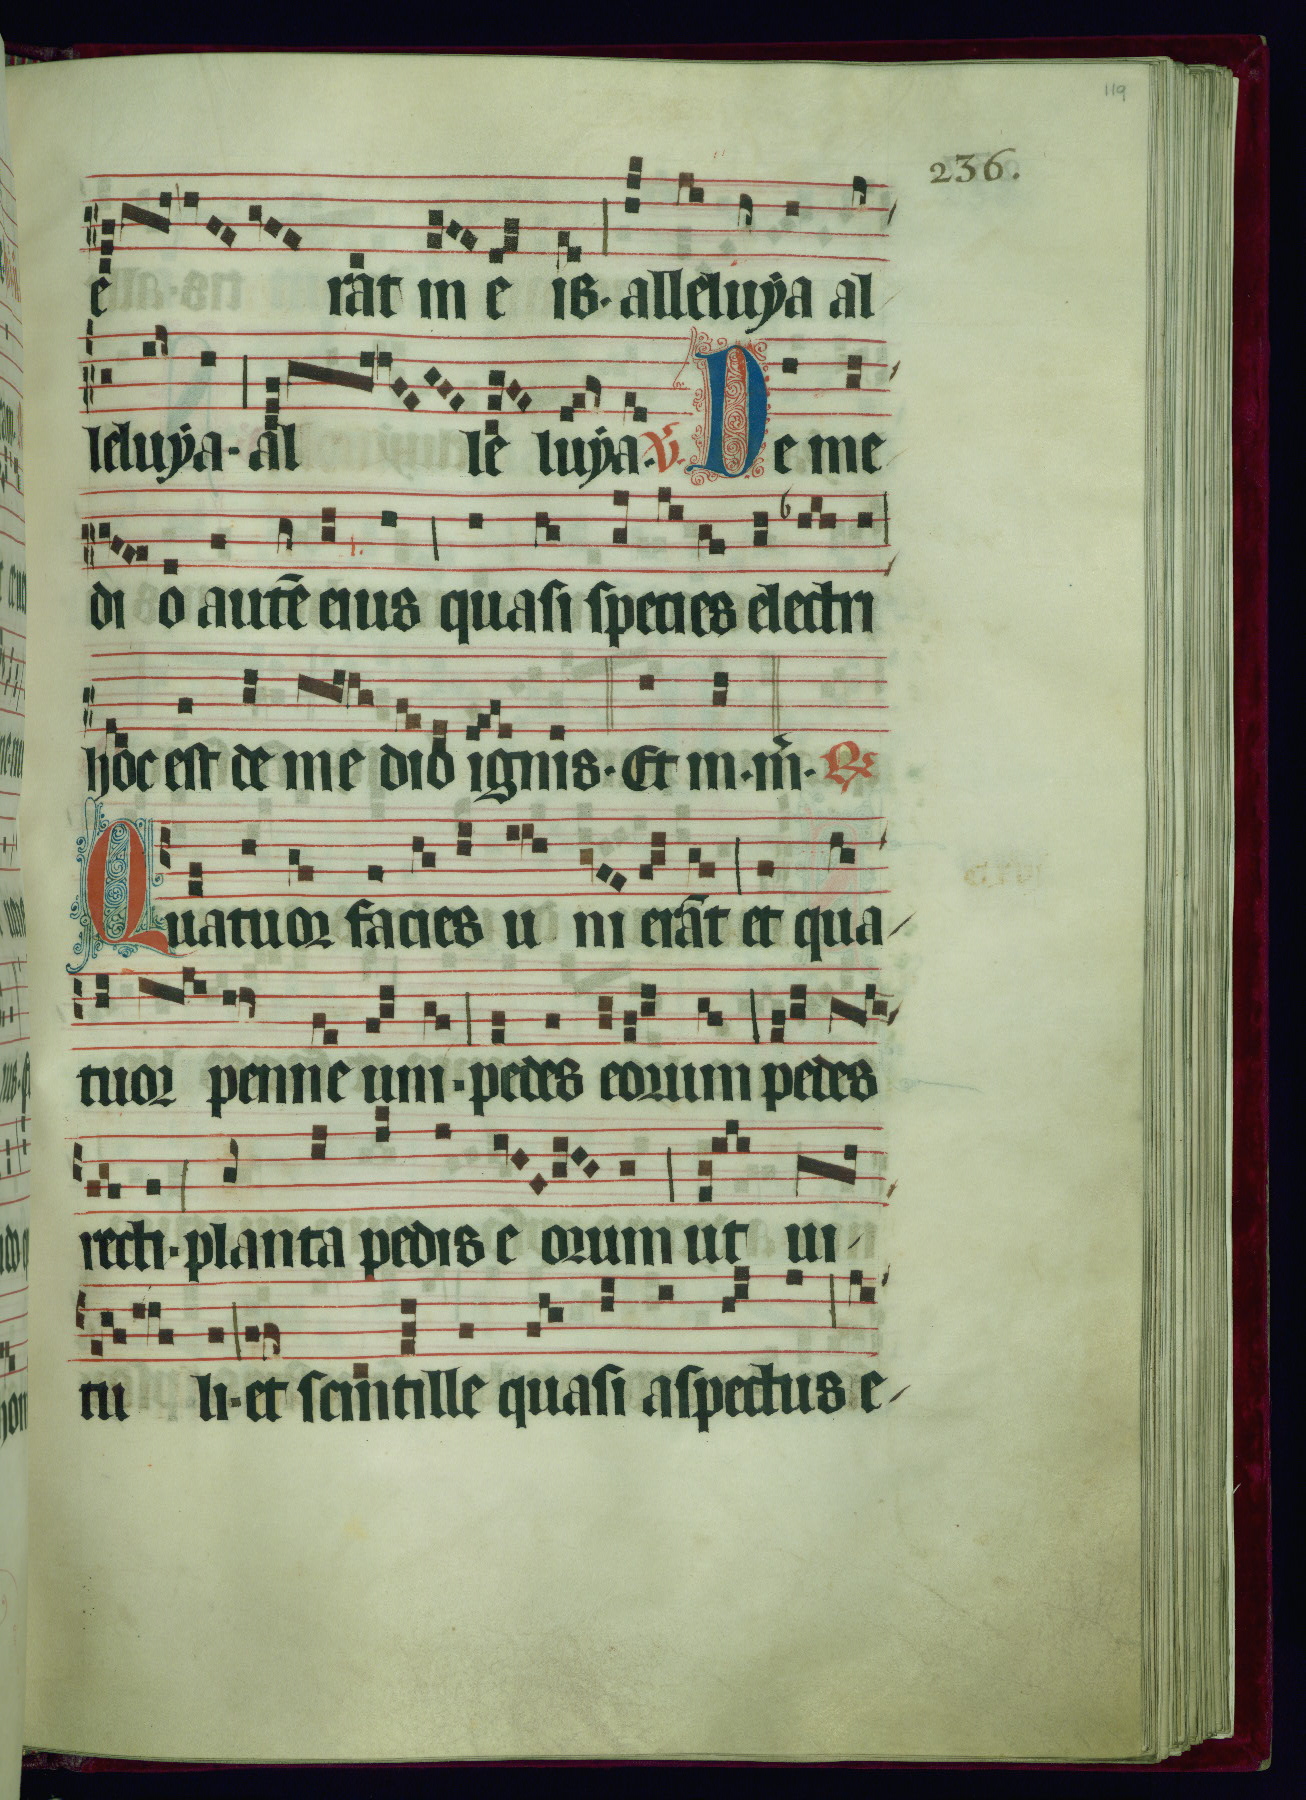 119
236.
e rat in e is. alleluÿa al
leluÿa. al le luÿa. V. De me
di o autē eius quasi species electri
hoc est de me dio ignis. Et in. m̄. R
Quatuor facies u ni erāt et qua
tuor penne uni. pedes eorum pedes
recti. planta pedis e orum ut ui
tu li. et scintille quasi aspectus e